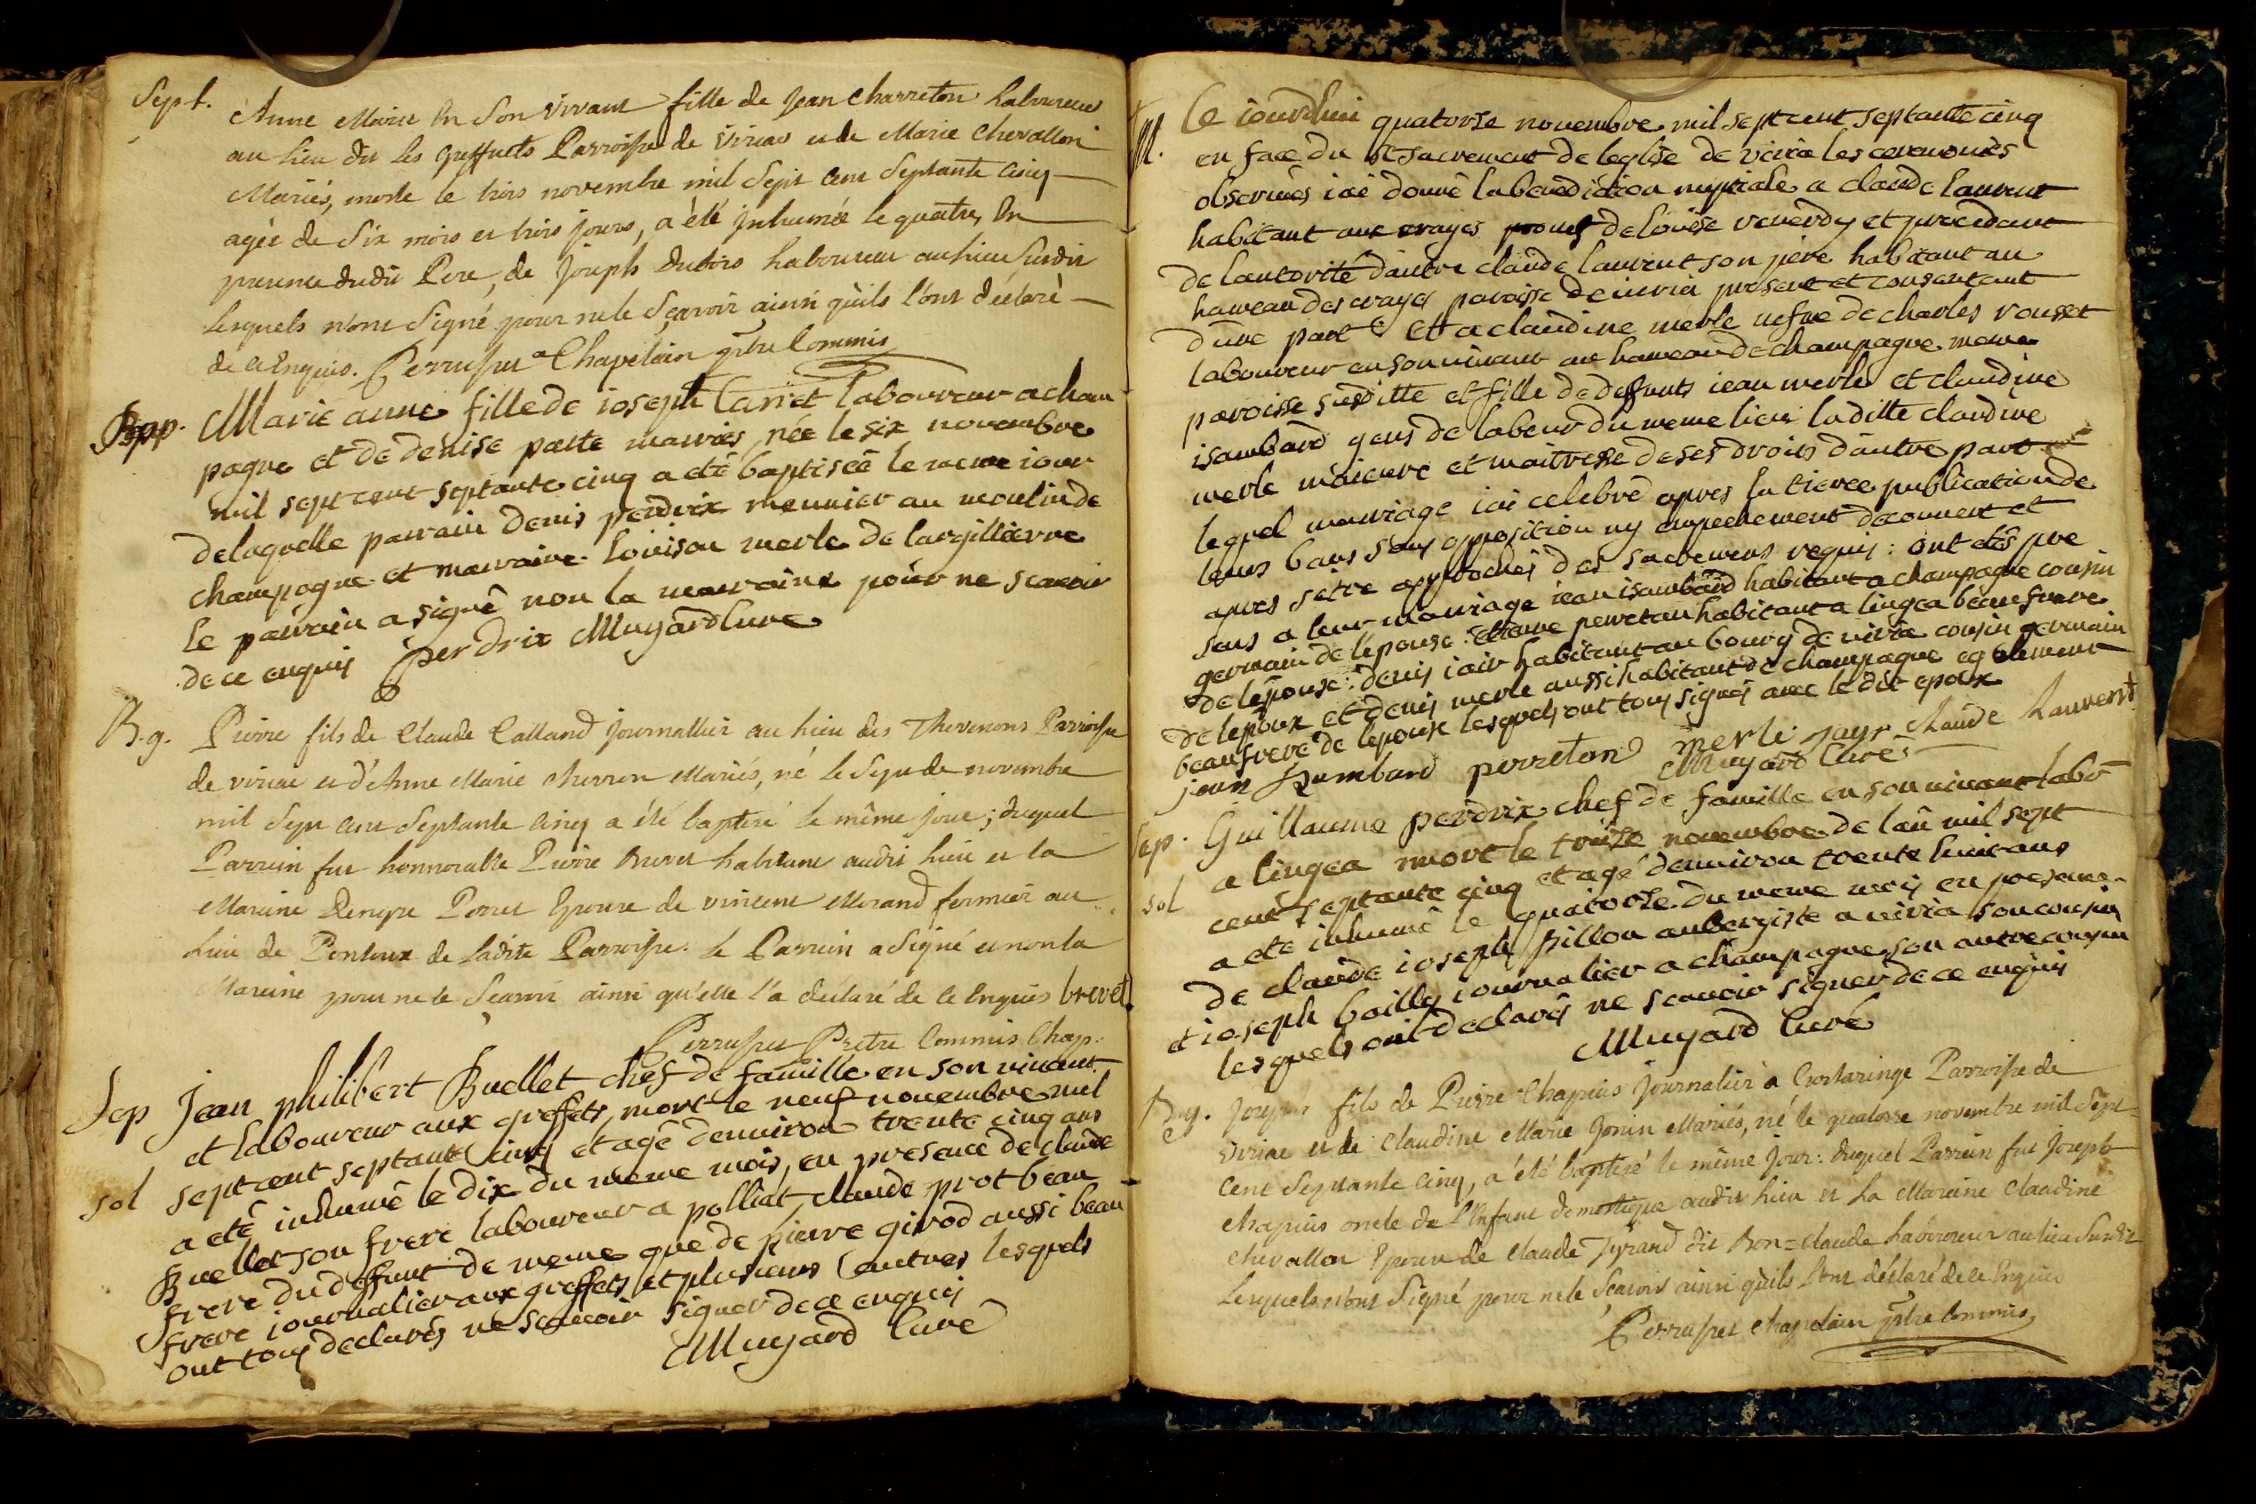 Sept. Anne Marie En Son Vivant fille de Jean Charreton Laboureur
au lieu dit les Greffuets Parroisse de Viriac et de Marie Chevallon
Mariés, morte le trois novembre mil Sept Cent Septante Cinq
agée de Six mois et trois jours, a été Inhumée le quatre, En
presence dudit Pere, de Joseph Dubois Laboureur au lieu Susdit
Lesquels n'ont Signé pour ne le Sçavoir ainsi qu'ils l'ont déclaré
de ce Enquis. Chapelain Commis
Bapp. Marie anne fille de ioseph Carriet labourreur a cham
pagne et de denise patte mariés, née le six novembre
mil sept cent septante cinq a eté baptiseé le meme iour
de laquelle parrain denis perdrix meunier au moulin de
champagne et marraine loüison merle de largillierre
le parrain a signé non la marraine pour ne scavoir
de ce enquis perdrix Muyard Curé
B.g. Pierre fils de Claude Calland Journallier au lieu des Thevenons Parroisse
de viriac et d'Anne Marie Mariés, né le Sept de novembre
mil Sept Cent Septante Cinq a été baptisé le même jour; duquel
Parrein fut honnorable Pierre Brevet habitant audit lieu et la
Mareine Denyse Perret Epouse de vincent Morand fermier au
Lieu de Pontoux de Ladite Parroisse. Le Parrein a Signé et non la
Mareine pour ne le Scavoir ainsi qu'elle l'a déclaré de ce Enquis brevet
Prêtre Commis Chap.
Sep Jean philibert Buellet chef de famille en son vivant
et laboureur aux greffets, mort le neuf novembre mil
sept cent septante cinq et agé denviron trente cinq ans
sol a eté inhumé le dix du meme mois, en presence de claude
Buellet son frere laboureur a polliat, claude prot beau
frere du deffunt de meme que de pierre girod aussi beau
frere iournalier aux greffets et plusieurs autres lesquels
ont tous declarés ne scavoir signer de ce enquis
Muyard Curé
M. Ce iourdhui quatorse novembre mil sept cent septante cinq
en face du St Sacrement de leglise de viria les ceremonies
observés iai donné la benediction nuptiale a claude laurent
habitant aux crayes de loüise venerdy et procedant
de lautorité dautre claude laurent son pere habitant au
hameau des crayes paroisse de present et consentant
dune part et a claudine merle vefve de charles rousset
laboureur en son vivant au hameau de champagne meme
paroisse susditte et fille de deffunts iean merle et claudine
isambard gens de labeur du meme lieu laditte claudine
merle maieure et maitresse de ses droits dautre part
lequel mariage iai celebré apres la tierce publication de
leurs bans sans opposition ny empechement decouvert et
apres s'etre approchés des sacremens requis: ont etés pre
sens a leur mariage iean isambard habitant a champagne cousin
germain de lépouse: etienne perreton habitant a lingea beaufrere
de lépouse: denis iair habitant au bourg de viria cousin germain
de lepoux et denis merle aussi habitant de champagne egalement
beaufrere de lepouse lesquels ont tous signés avec le dit epoux
jean Isambard perreton merle jayr Claude Laurent
Muyard Curé
Sep. Guillaume perdrix chef de famille en son vivant labo
a lingea mort le treize novembre de lan mil sept
sol cent septante cinq et agé denviron trente huit ans
a eté inhumé le quatorse du meme mois en presence
de claude ioseph billon aubergiste a viria son cousin
et ioseph bailly iournalier a champagne son autre cousin
lesquels ont declarés ne scavoir signer de ce enquis
Muyard Curé
B.g. Joseph fils de Pierre Chapuis Journalier a Parroisse de
viriac et de Claudine Marie Jonin Mariés, né le quatorse novembre mil Sept
Cent Septante Cinq, a été baptisé le même jour: duquel Parrein fut Joseph
Chapuis oncle de L'Enfant domestique audit lieu et La Mareine Claudine
Chevallon Epouse de Claude Tyrand dit Bon=Claude Laboureur au lieu Susdit
Lesquels n'ont Signé pour ne le Scavoir ainsi qu'ils l'ont déclaré de ce Enquis
Chapelain Commis